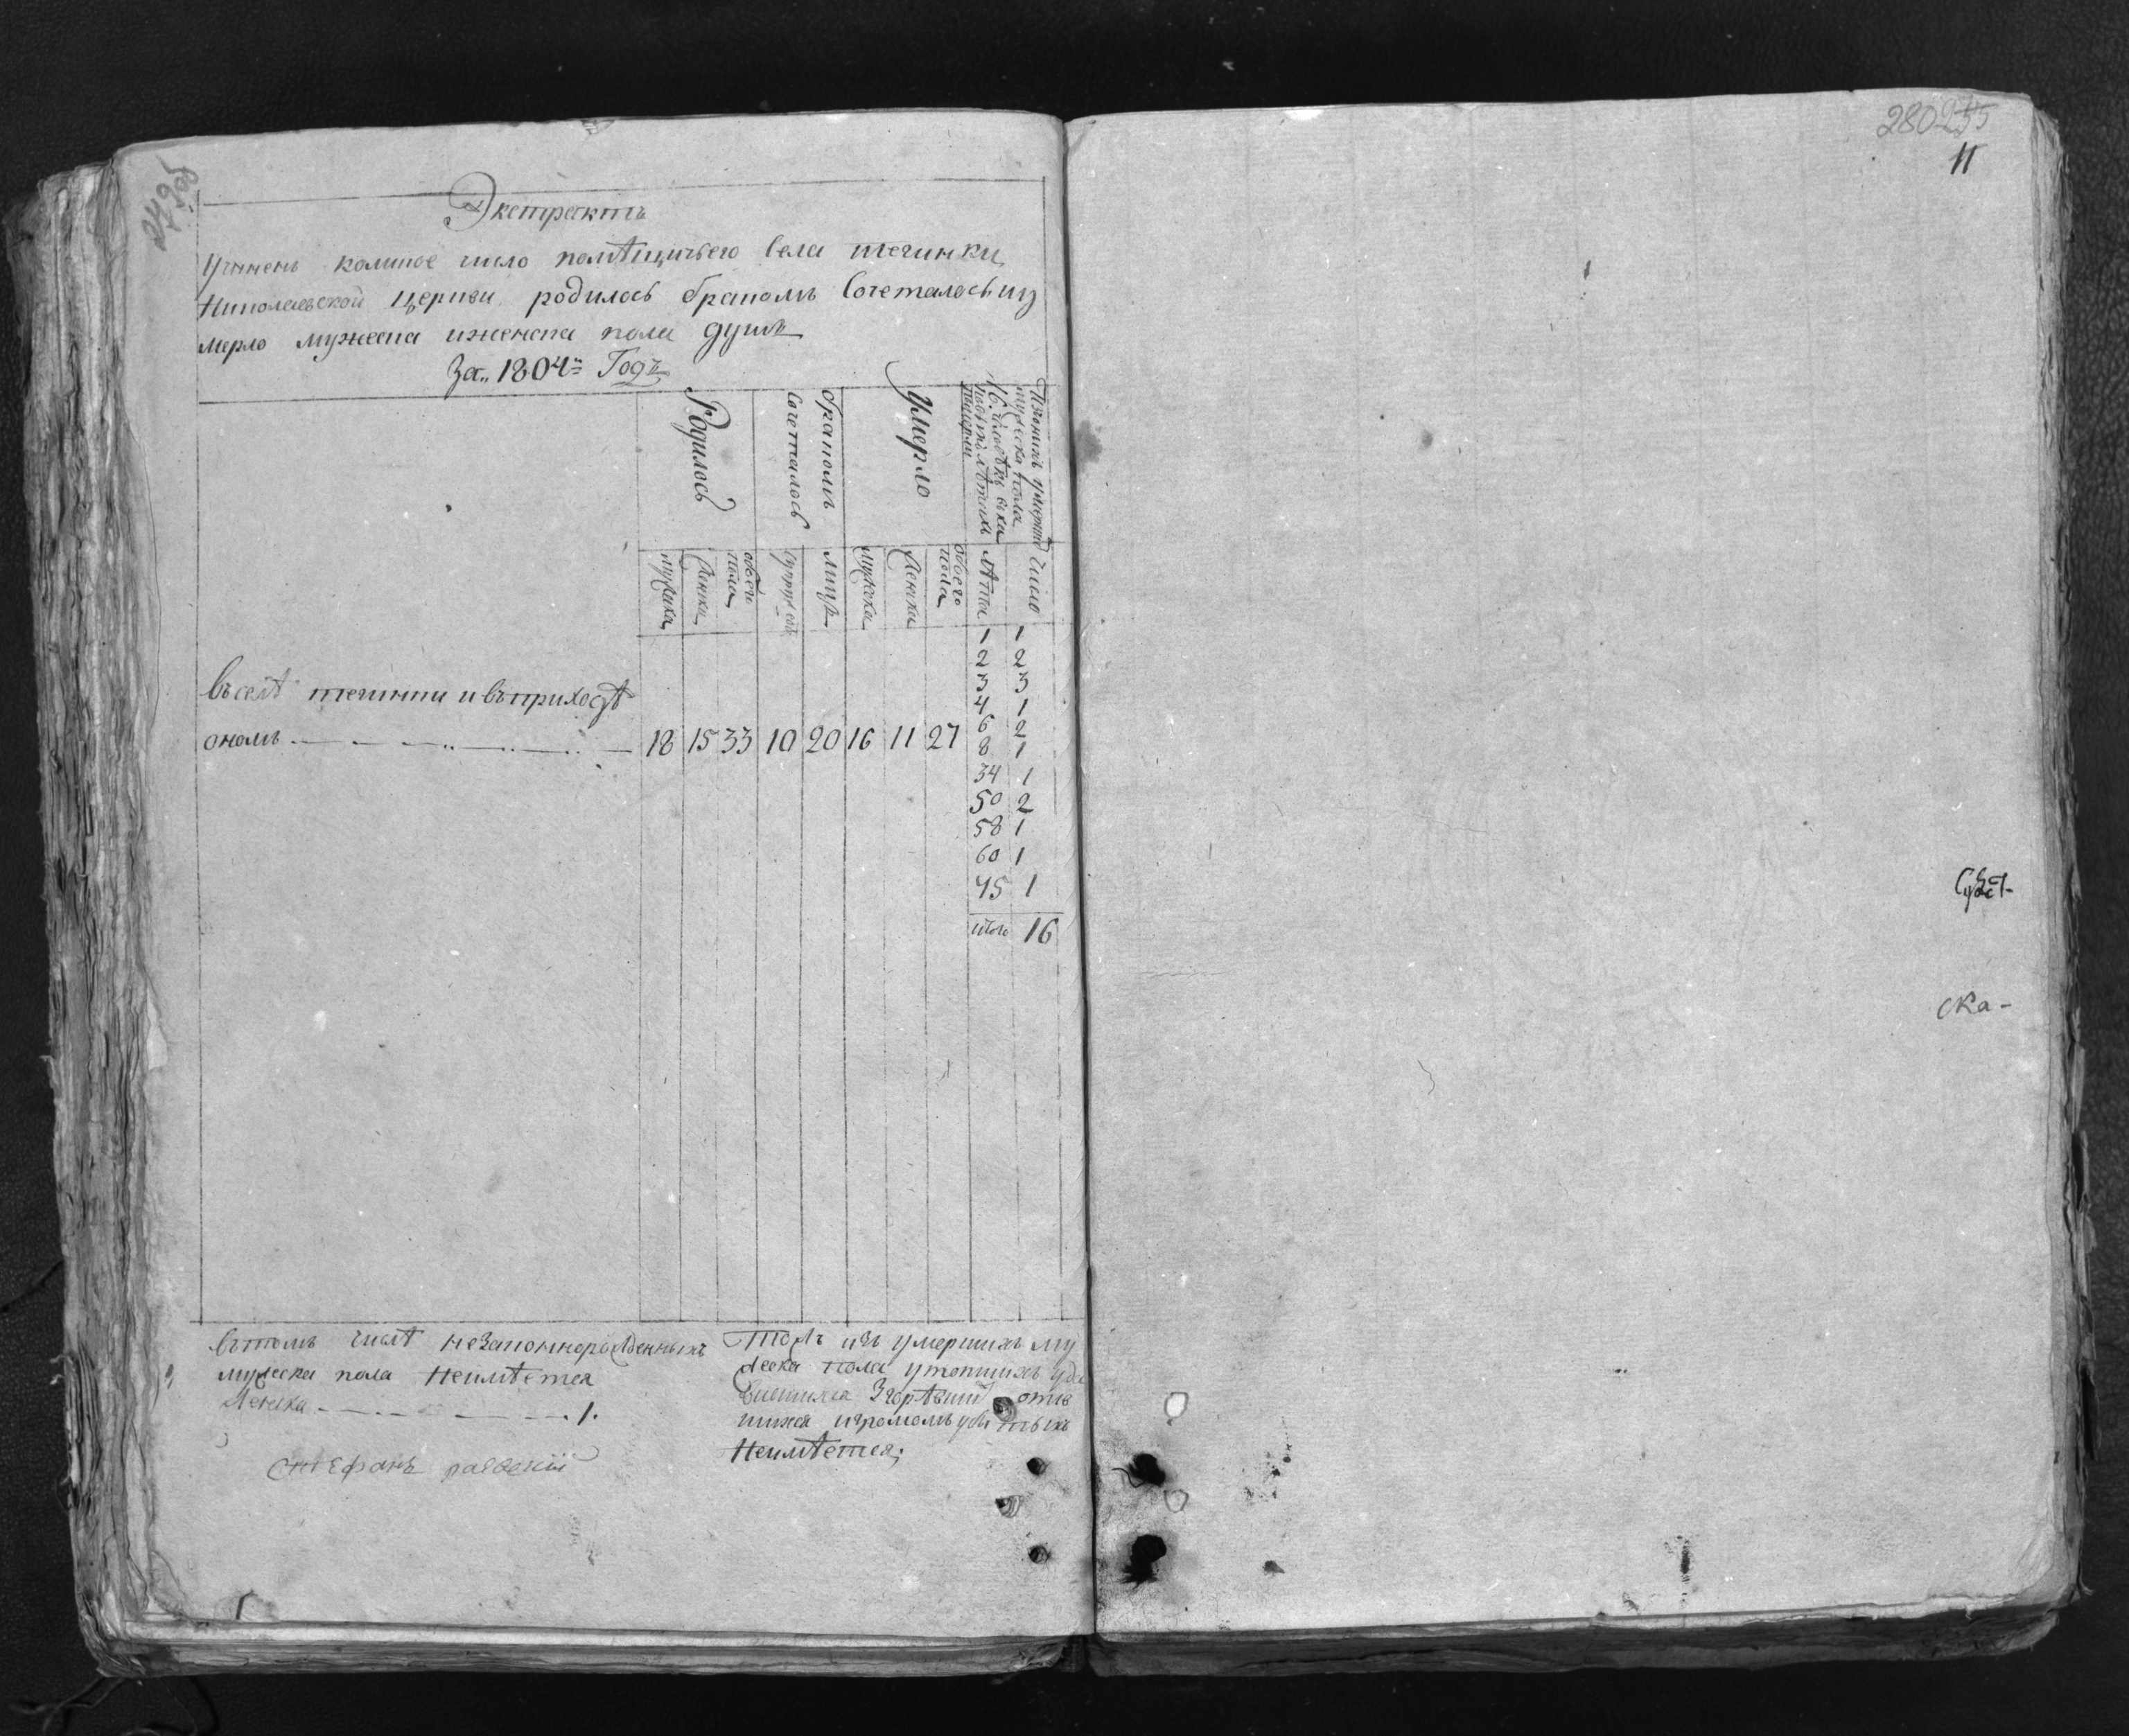 Экстрактъ
Учиненъ коликое число помѣщичьего села течинки
Николаевской церкви родилось бракомъ Сочеталось иу
мерло мужеска иженска пола душъ
За 1804й Годъ
Родилось
бракомъ Сочеталось
Умерло
Изонихъ умерше
мужеска пола
16. человѣкъ
мужеска
женска
обоего пола
лицъ
мужеска
женска
обоего пола
лѣта
число
1 1
2 2
3 3
4 1
въселѣ течинки ивъприходѣ
6 2
ономъ 18 15 33 10 20 16 11 27
8 1
34 1
50 2
58 1
60 1
75 1
итого 16
втомъ числѣ незаконнорожденныхъ
мужеска пола Неимѣется
женска 1.
Стефанъ
Тожъ изъ умершихъ му
жеска пола утопшихъ уда
вившихся Згорѣвши
шихся игромомъ убитыхъ
Неимѣется;
280 255
11
ска-